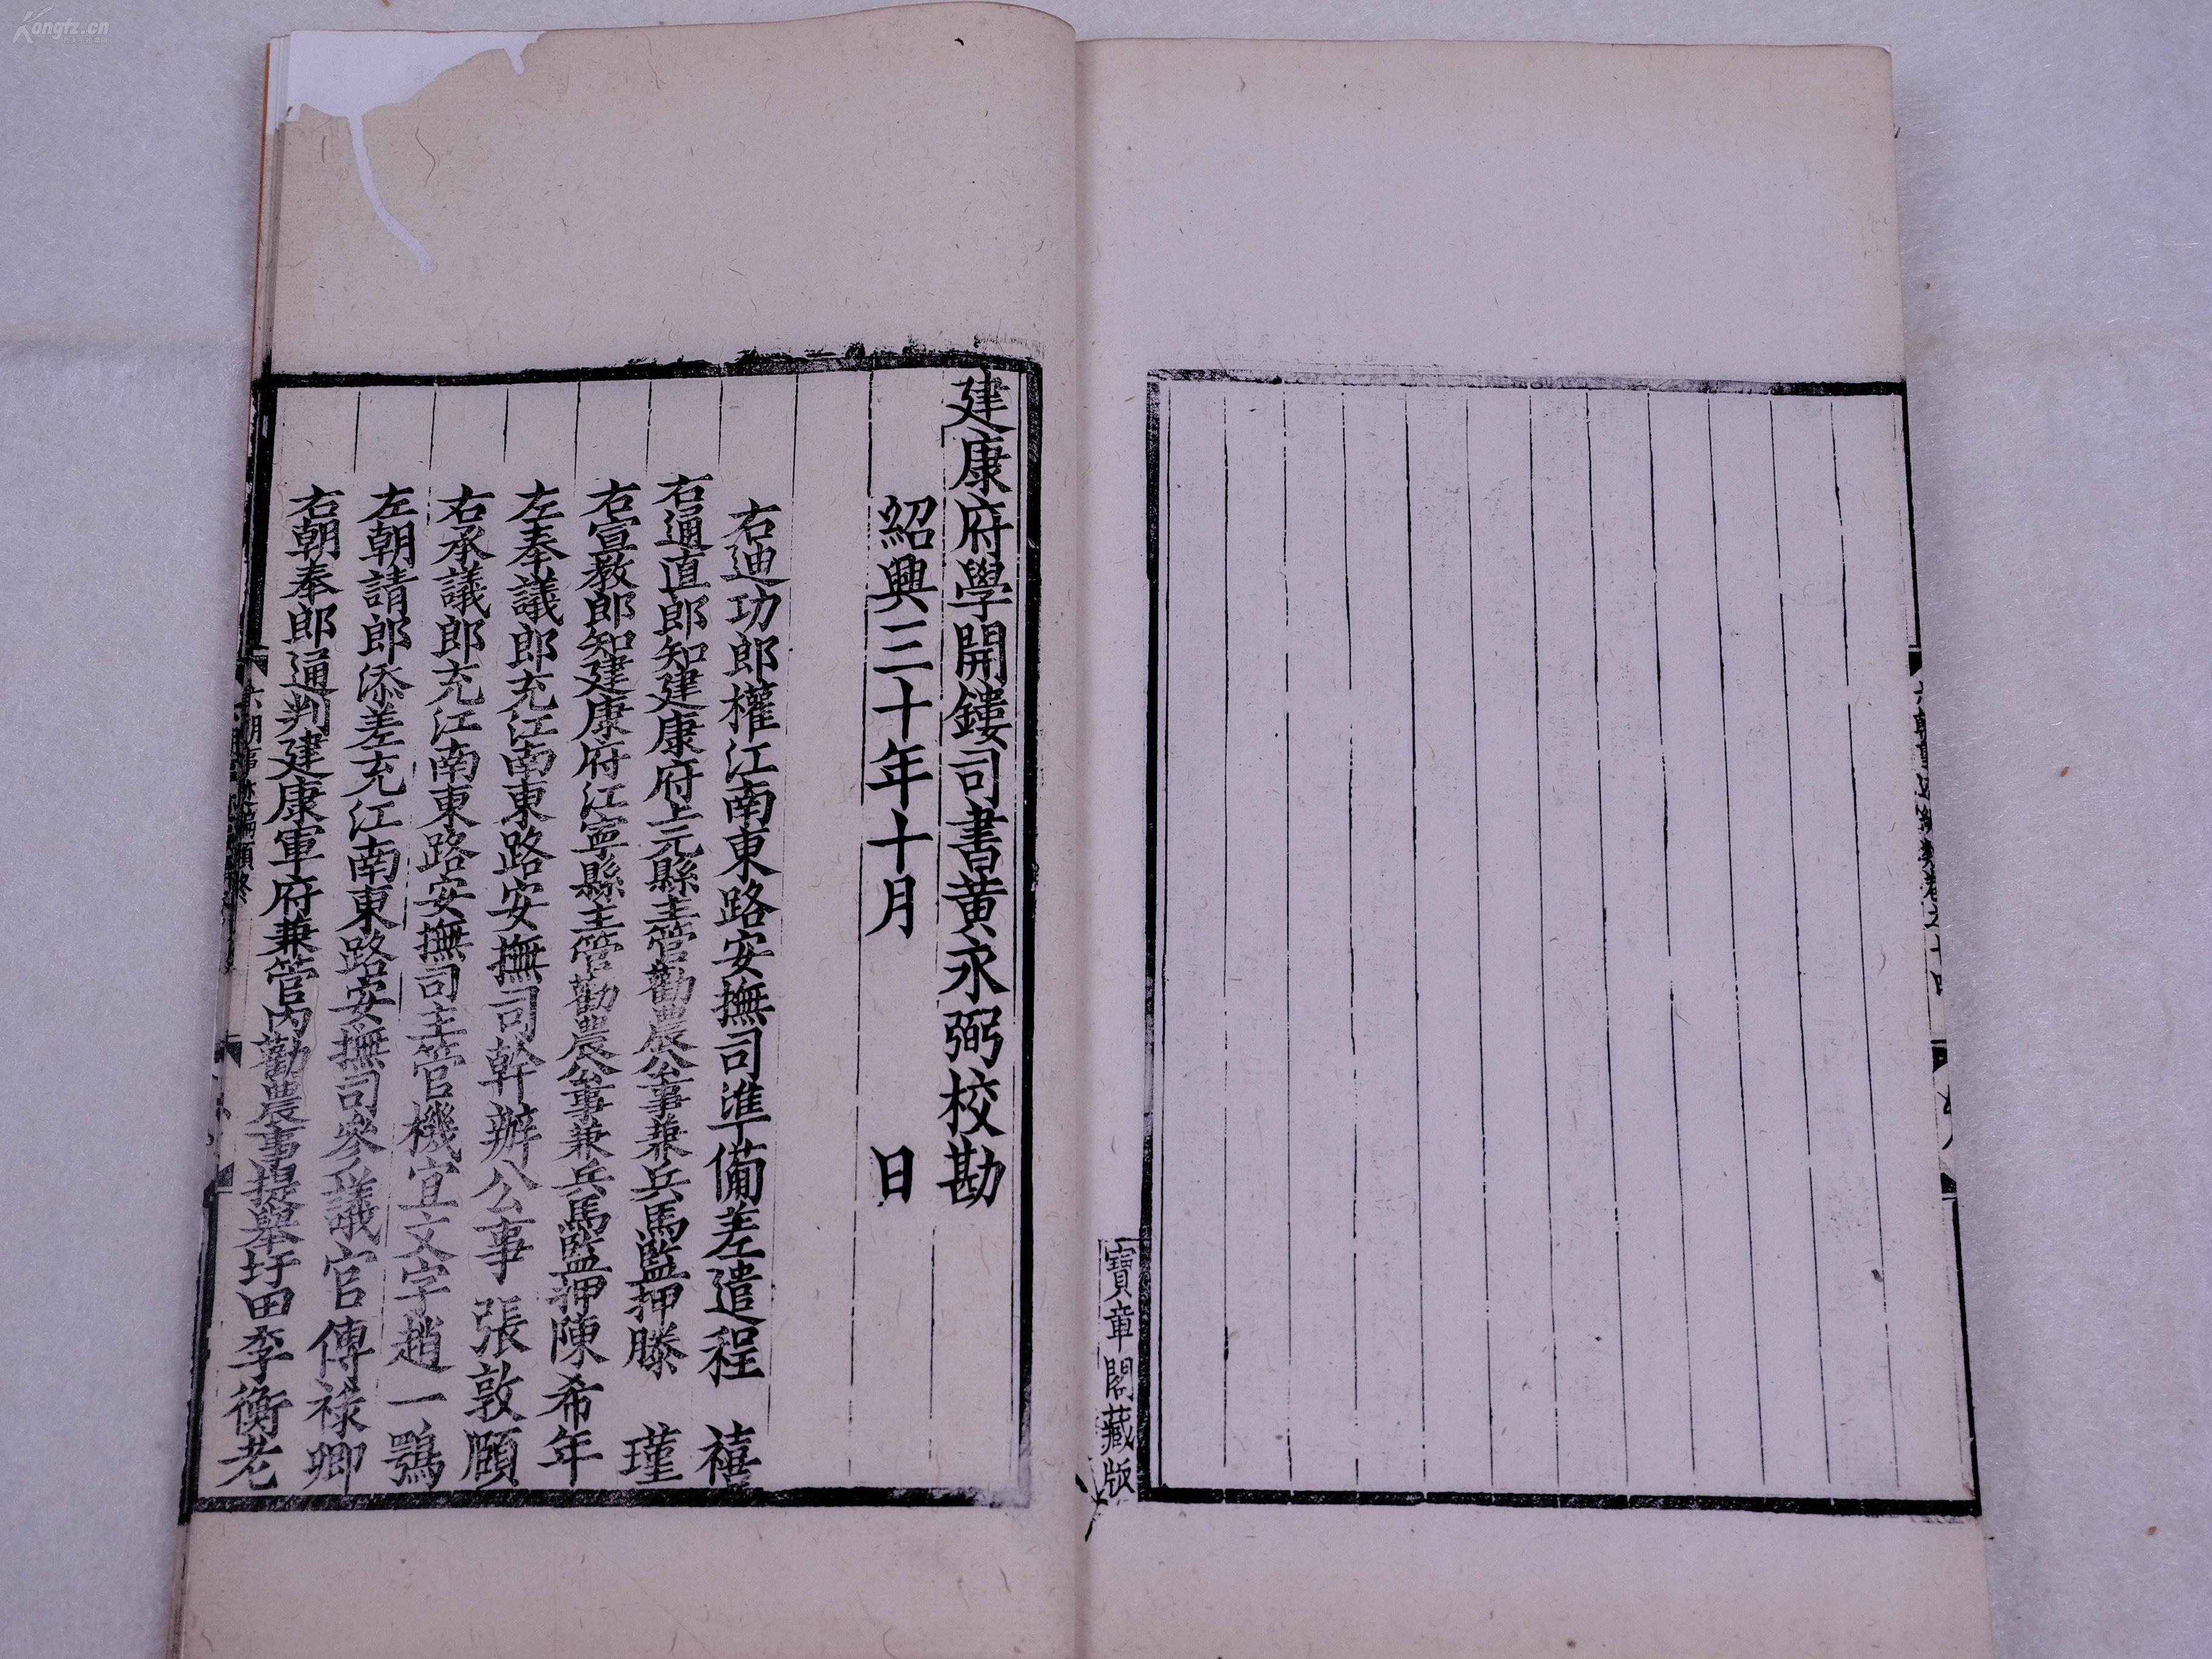 寶章閣藏版
建康府學開鏤司書黄永弼校勘
紹興三十年十月　日
右迪功郎權江南東路安撫司準備差遣程　禧
右通直郎知建康府上元縣主管勸農公事兼兵馬監押滕　瑾
右宣教郎知建康府江寧縣主管勸農公事兼兵馬監押陳希年
左奉議郎充江南東路安撫司幹辦公事張敦頤
右承議郎充江南東路安撫司主管機宜文字趙一鶚
左朝請郎添差充江南東路安撫司參議官傅祿卿
右朝奉郎通判建康軍府兼管內勸農事提舉圩田李衡老
六朝事迹編類終
Kongfz.cn